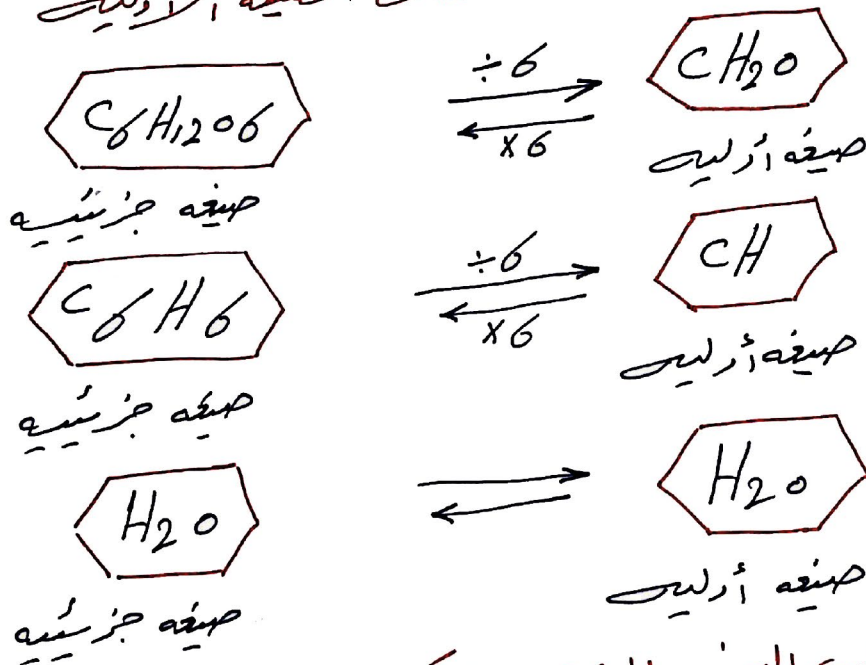 الصيغه الأوليه
C6H12O6 ÷6 ×6 CH2O
صيغه جزيئيه صيغه أوليه
C6H6 ÷6 ×6 CH
صيغه جزيئيه صيغه أوليه
H2O H2O
صيغه جزيئيه صيغه أوليه